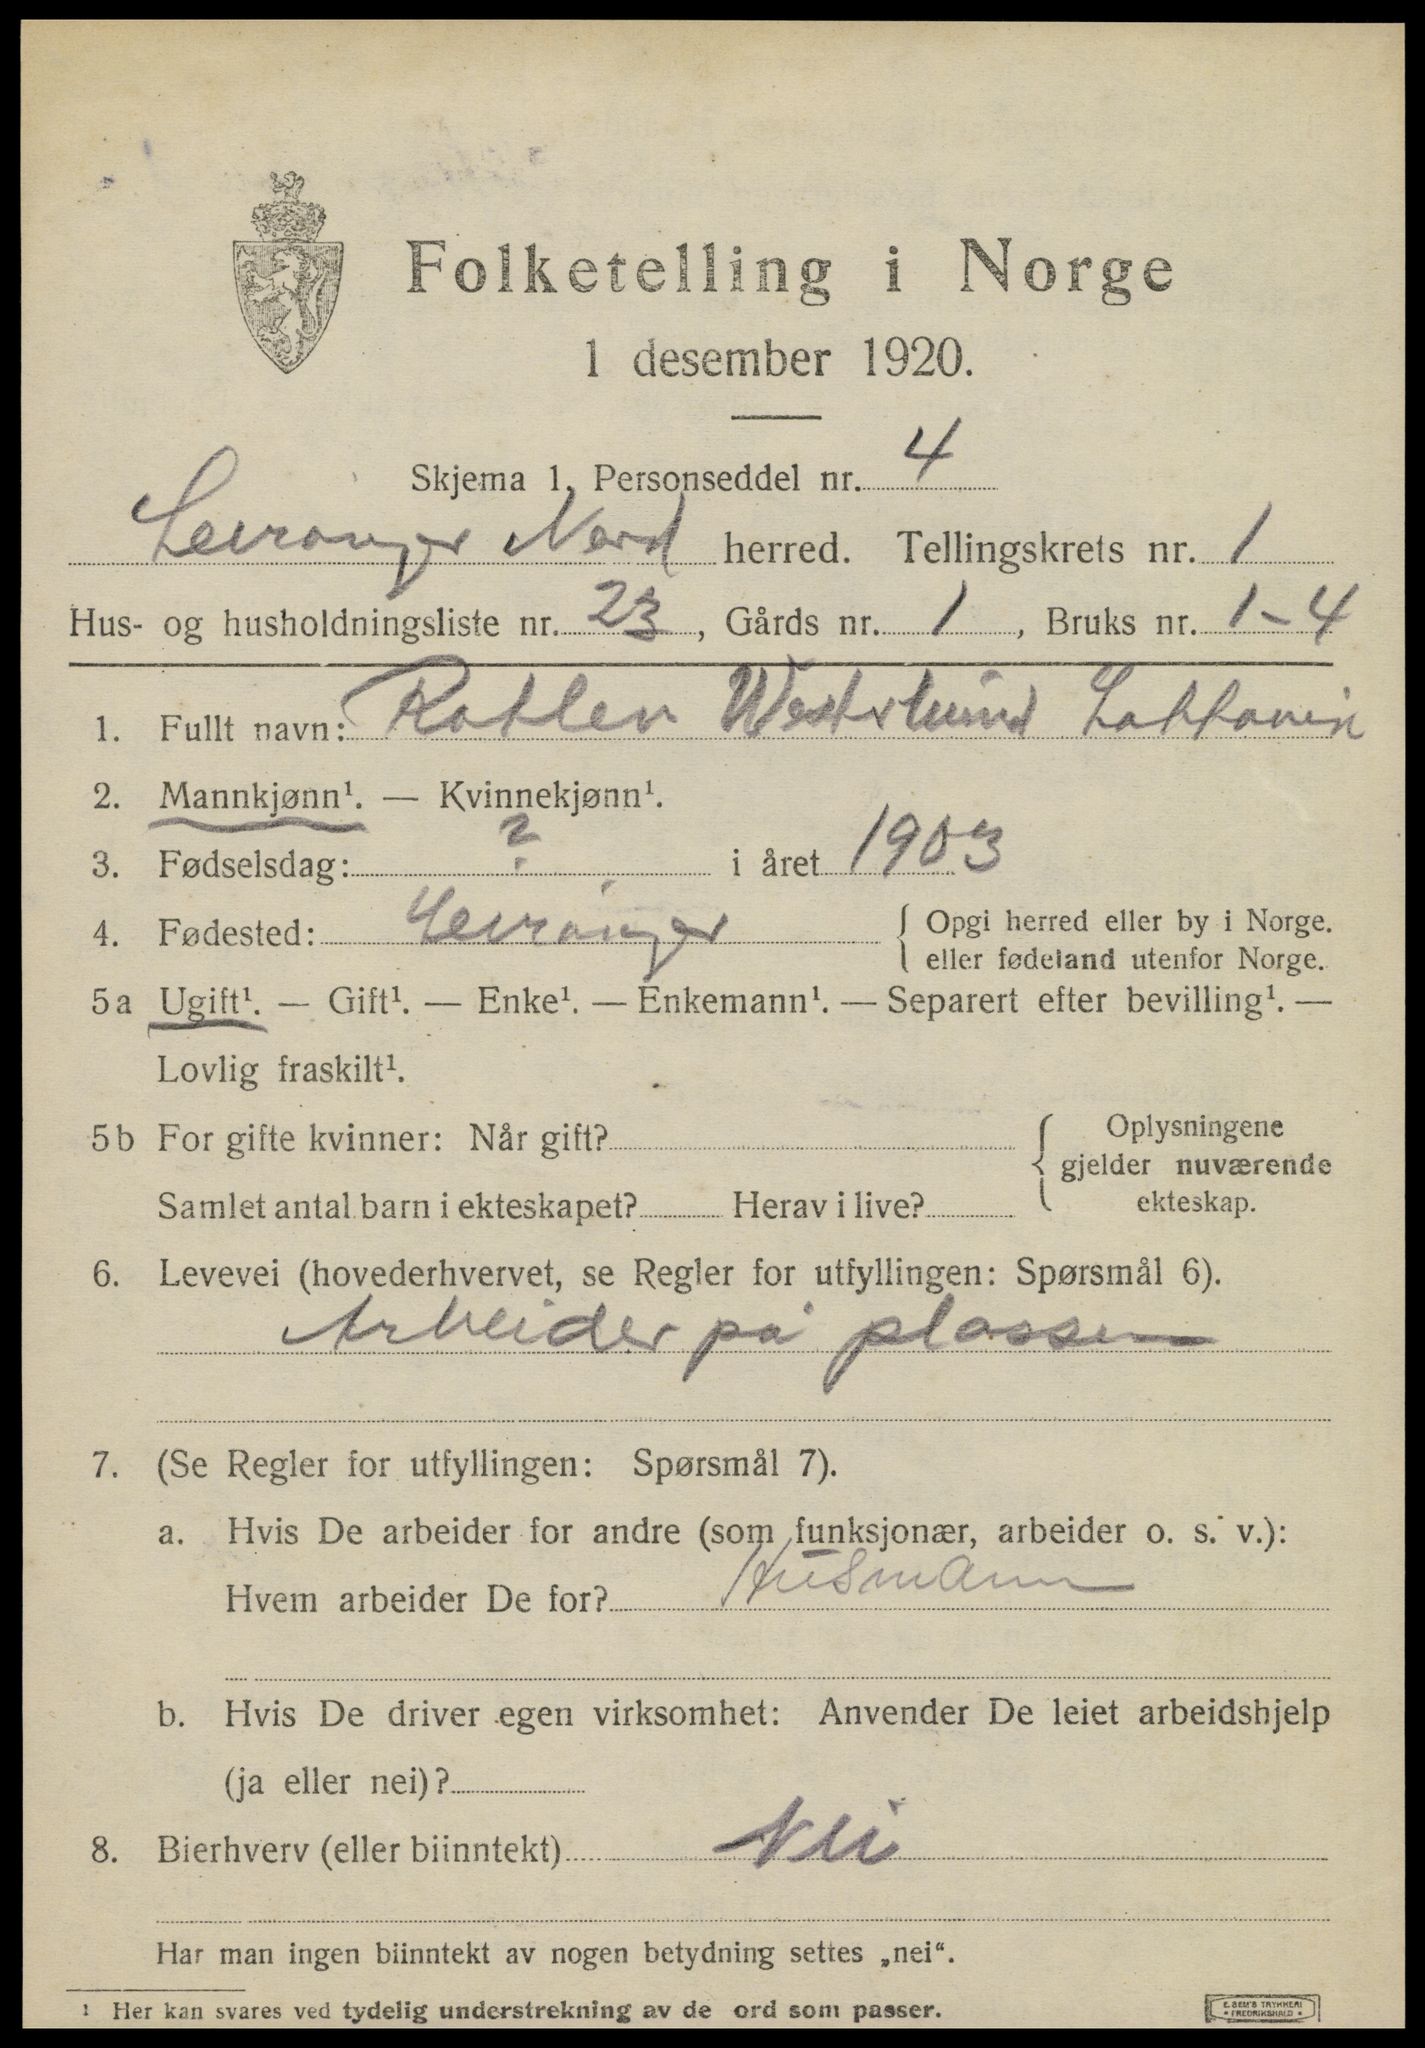 Folketelling i Norge
1 desember 1920.
Skjema 1. Personseddel nr. 4
Levranger Nord herred. Tellingskrets nr. 1
Hus- og husholdningsliste nr. 23, Gårds nr. 1, Bruks nr. 1-4
1. Fullt navn:
2. Mannkjønn¹. — Kvinnekjønn¹.
3. Fødselsdag: ? i året 1903
4. Fødested: Levranger { Opgi herred eller by i Norge.
eller fødeland utenfor Norge.
5a Ugift¹. — Gift¹. — Enke¹. — Enkemann¹. — Separert efter bevilling¹. —
Lovlig fraskilt¹.
5b For gifte kvinner: Når gift? { Oplysningene
gjelder nuværende
Samlet antal barn i ekteskapet? Herav i live? ekteskap.
6. Levevei (hovederhvervet, se Regler for utfyllingen: Spørsmål 6).
Arbeider på plassen
7. (Se Regler for utfyllingen: Spørsmål 7).
a. Hvis De arbeider for andre (som funksjonær, arbeider o. s. v.):
Hvem arbeider De for? Husmann
b. Hvis De driver egen virksomhet: Anvender De leiet arbeidshjelp
(ja eller nei)?
8. Bierhverv (eller biinntekt) Nei
Har man ingen biinntekt av nogen betydning settes „nei“.
¹ Her kan svares ved tydelig understrekning av de ord som passer.
E. SEM'S TRYKKERI
FREDRIKSHALD